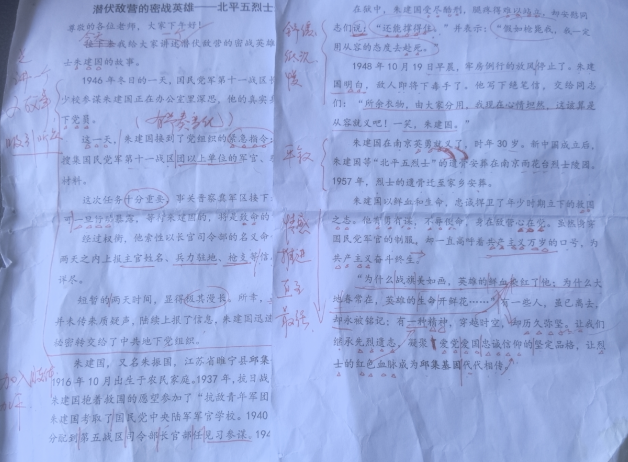 潜伏敌营的密战英雄——北平五烈士
尊敬的各位老师，大家下午好！
接下来我给大家讲述潜伏敌营的密战英雄
士朱建国的故事。
1946年冬日的一天，国民党军第十一战区
少校参谋朱建国正在办公室里深思，他的真实
下党员。
这一天，朱建国接到了党组织的紧急指令：
搜集国民党军第十一战区团以上单位的军官、
材料。
这次任务十分重要，事关晋察冀军区接下
听一旦行动暴露，等待朱建国的，将是致命的
经过权衡，他索性以长官司令部的名义命
两天之内上报主官姓名、兵力驻地、枪支等信
详尽。
短暂的两天时间，显得极其漫长。所幸，
并未传来质疑声，陆续上报了信息，朱建国迅速
秘密转交给了中共地下党组织。
朱建国，又名朱振国，江苏省睢宁县邱集
1916年10月出生于农民家庭。1937年，抗日战
朱建国抱着救国的愿望参加了“抗敌青年军团
朱建国考取了国民党中央陆军军官学校。1940
分配到第五战区司令部长官部任见习参谋。194
在狱中，朱建国受尽酷刑，腿疼得难以动弹，却安慰同
志们说：“还能撑得住。”并表示：“假如枪毙我，我一定
用从容的态度去赴死。”
1948年10月19日早晨，军房例行的放风停止了。朱建
国明白，敌人即将下毒手了。他写下绝笔信，交给同志
们：“所余衣物，由大家分用，我现在心情坦然，这该算是
从容就义吧！一笑，朱建国。”
朱建国在南京英勇就义了，时年30岁。新中国成立后，
朱建国等“北平五烈士”的遗骨安葬在南京雨花台烈士陵园。
1957年，烈士的遗骨迁至家乡安葬。
朱建国以鲜血和生命，忠诚捍卫了年少时期立下的救国
之志。他英勇有谋，不辱使命，身在敌营心在党。虽然满身
国民党军官的制服，却一直高呼着共产主义万岁的口号，为
共产主义奋斗终生。
“为什么战旗美如画，英雄的鲜血染红了他；为什么大
地春常在，英雄的生命开鲜花……”有一些人，虽已离去，
却永被铭记；有一种精神，穿越时空，却历久弥坚。让我们
继承先烈遗志，凝聚爱党爱国忠诚信仰的坚定品格，让烈
士的红色血脉成为邱集基因代代相传。